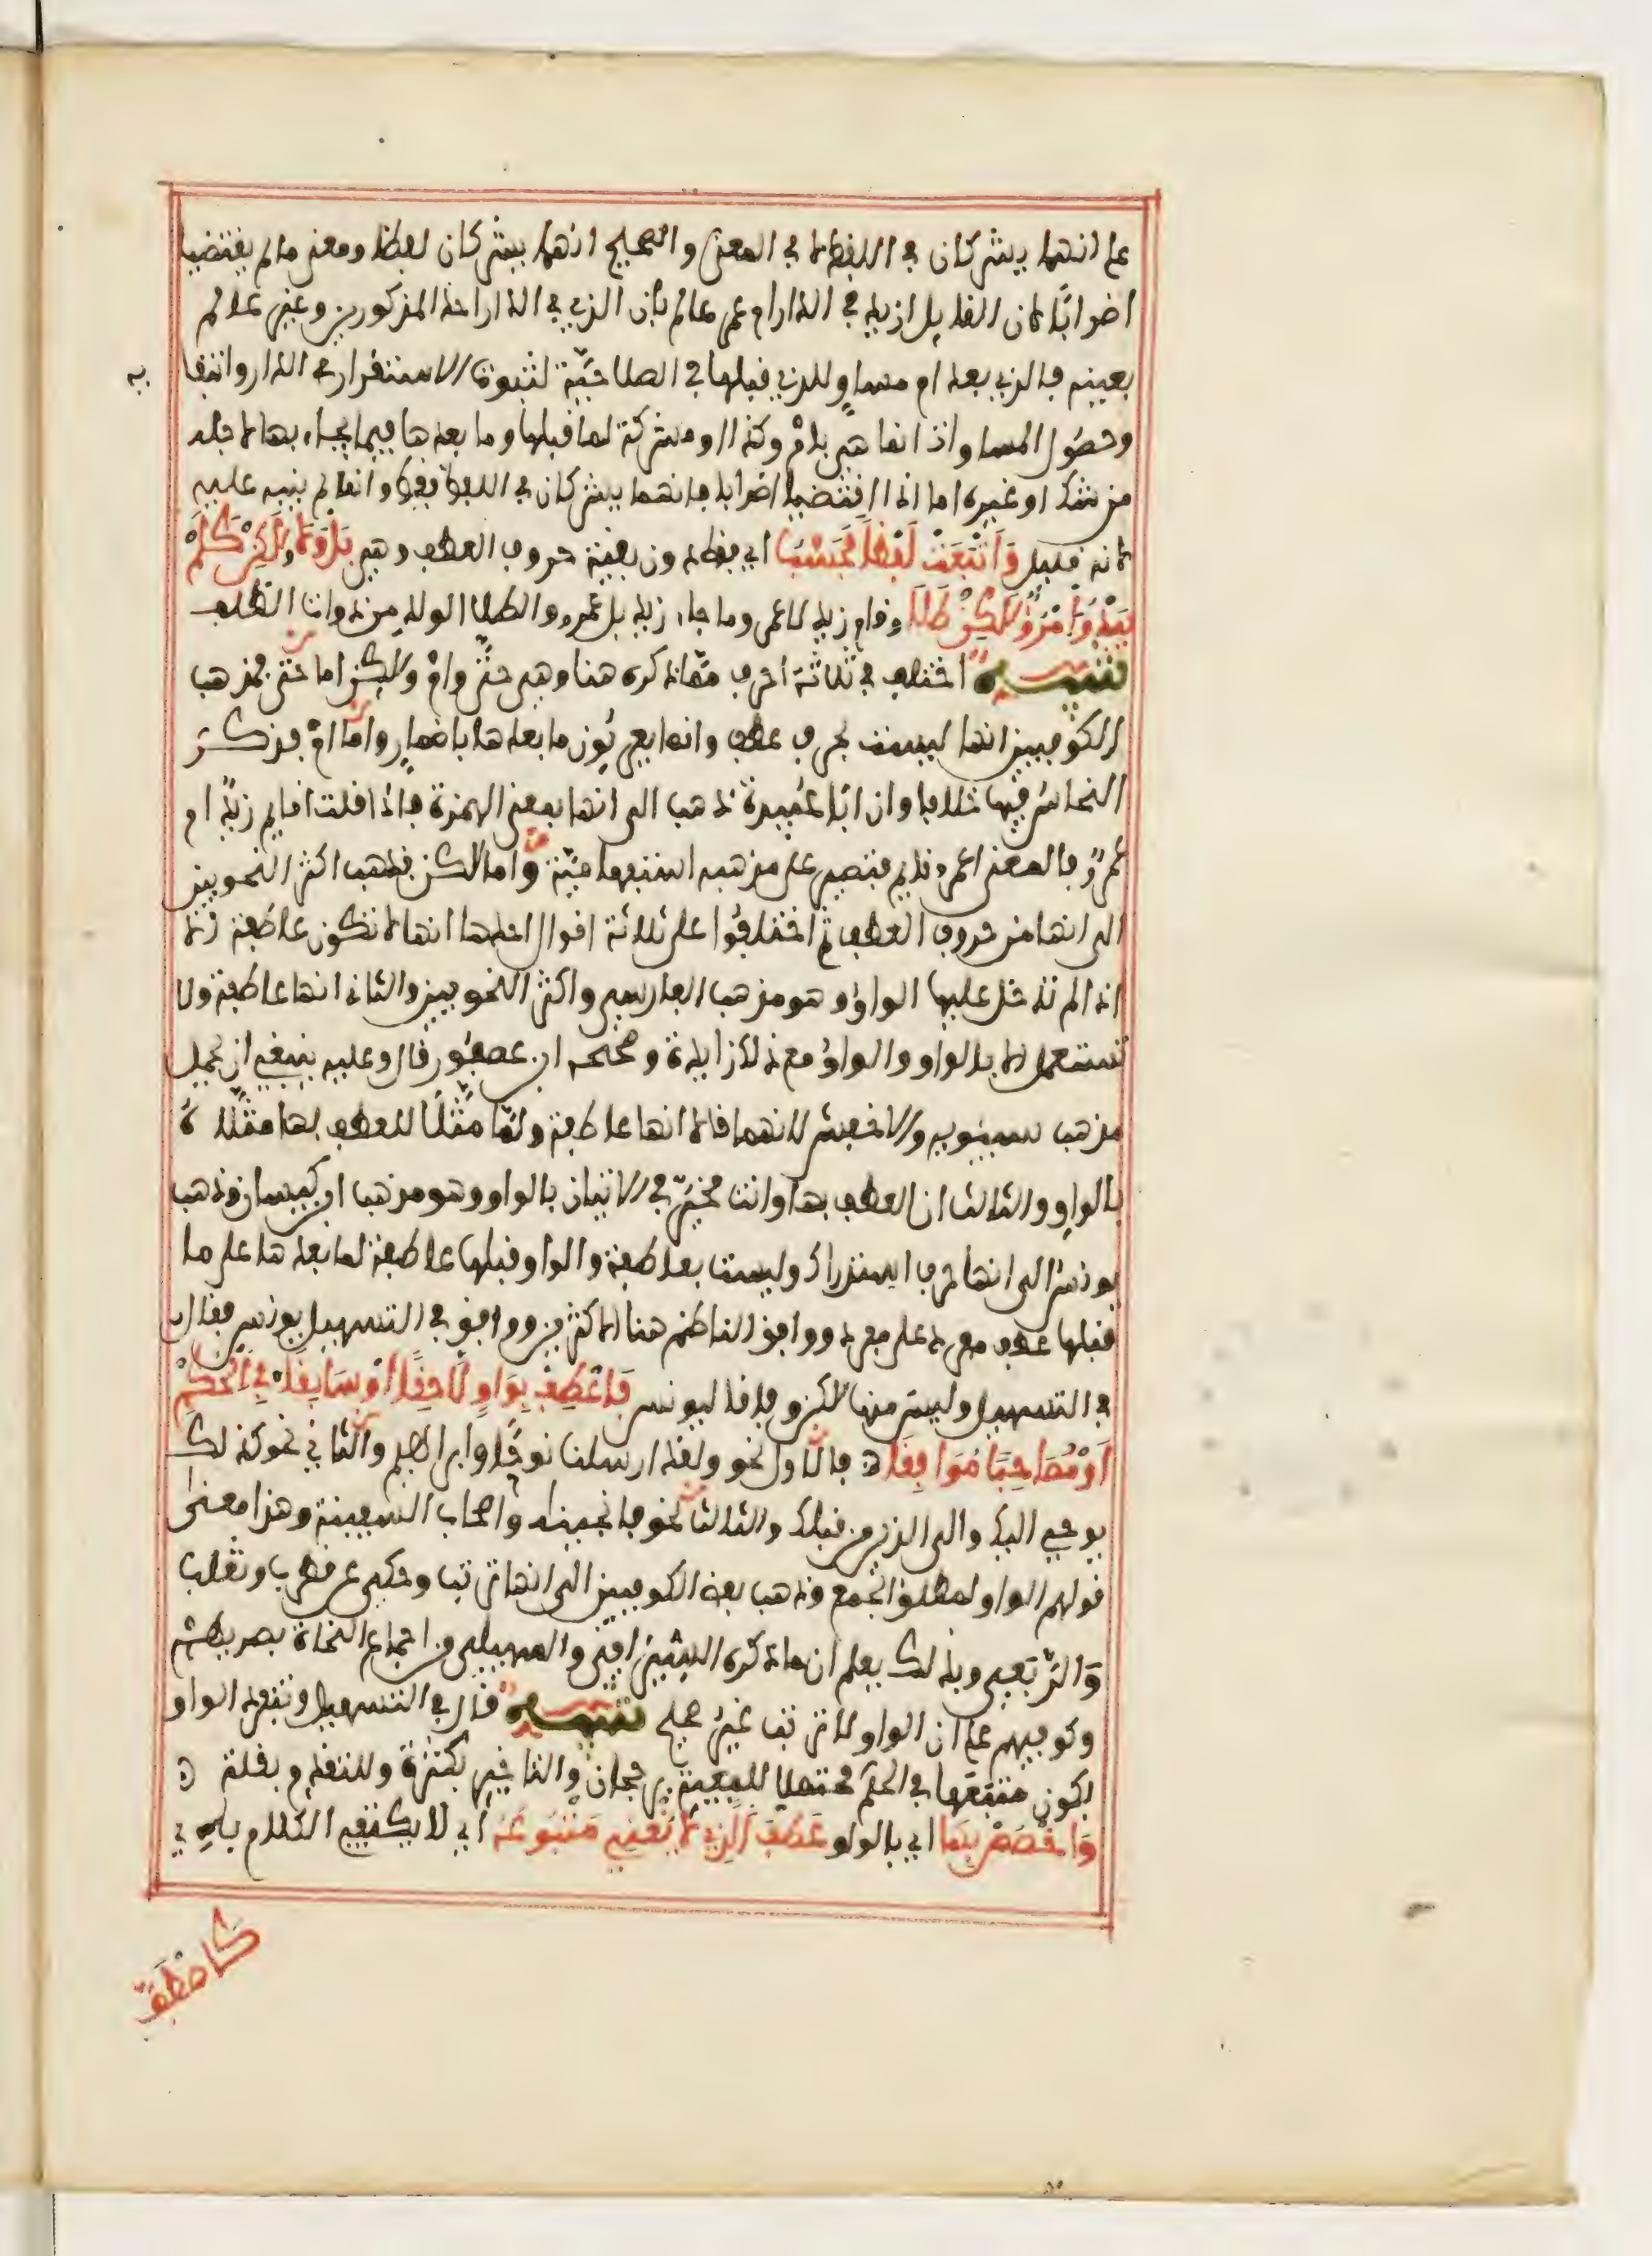 على انهما يشركان في اللفظ لا في المعنى والصحيح انهما يشركان لفظا ومعنى ما لم يقتضيا
اضرابا لان القايل ازيد في الدار ام عمرو عالم بان الذي في الدار احد المذكورين وغير عالم
بعينه فالذي بعد ام مساو للذي قبلها في الصلاحية لثبوت الاستقرار في الدار وانتفايه
وحصول المساواة انما هو بام وكذا او مشركة لما قبلها وما بعدها فيما يجاء بها لاجله
من شك او غيره اما اذا اقتضيا اضرابا فانهما يشركان في اللفظ فقط وانما لم ينبه عليه
لانه قليل وَأَتْبَعَتْ لَفْظًا فَحَسْبُ اي فقط دون بقية حروف العطف وهي بَلْ وَلَا وَلَكِنْ كَلَمْ
يَبْدُ امْرُؤٌ لَكِنْ طَلَا وقام زيد لا عمرو وما جاء زيد بل عمرو والطلا الولد من ذوات الظلف
تنبيه اختلف في ثلاثة احرف مما ذكره هنا وهي حتى وام ولكن اما حتى فمذهب
الكوفيين انها ليست بحرف عطف وانما يعربون ما بعدها باضمار واما ام فذكر
النحاس فيها خلافا وان ابا عبيدة ذهب الى انها بمعنى الهمزة فاذا قلت اقايم زيد ام
عمرو فالمعنى اعمرو قايم فتصير على مذهبه استفهامية واما لكن فذهب اكثر النحويين
الى انها من حروف العطف ثم اختلفوا على ثلاثة اقوال احدها انها لا تكون عاطفة الا
اذا لم تدخل عليها الواو وهو مذهب الفارسي واكثر النحويين والثاني انها عاطفة ولا
تستعمل الا بالواو والواو مع ذلك زايدة وصححه ابن عصفور قال وعليه ينبغي ان يحمل
مذهب سيبويه والاخفش لانهما قالا انها عاطفة ولما مثلا للعطف بها مثلاه
بالواو والثالث ان العطف بها وانت مخير في الاتيان بالواو وهو مذهب ابن كيسان وذهب
يونس الى انها حرف استدراك وليست بعاطفة والواو قبلها عاطفة لما بعدها على ما
قبلها عطف مفرد على مفرد ووافق الناظم هنا الاكثرين ووافق في التسهيل يونس فقال
في التسهيل وليس منها لكن وفاقا ليونس فَاعْطِفْ بِوَاوٍ لَاحِقًا أَوْ سَابِقًا فِي الْحُكْمِ
أَوْ مُصَاحِبًا مُوَافِقًا فالاول نحو ولقد ارسلنا نوحا وابراهيم والثاني نحو كذلك
يوحي اليك والى الذين من قبلك والثالث نحو فانجيناه واصحاب السفينة وهذا معنى
قولهم الواو لمطلق الجمع وذهب بعض الكوفيين الى انها ترتب وحكي عن قطرب وثعلب
والربعي وبذلك يعلم ان ما ذكره السيرافي والسهيلي من اجماع النحاة بصريهم
وكوفيهم على ان الواو لا ترتب غير صحيح تنبيه قال في التسهيل وتنفرد الواو
بكون متبعها في الحكم محتملا للمعية برجحان وللتاخير بكثرة وللتقدم بقلة ه
وَاخْصُصْ بِهَا اي بالواو عَطْفَ الَّذِي لَا يُغْنِي مَتْبُوعُهُ اي لا يكتفي الكلام به
كاصطف